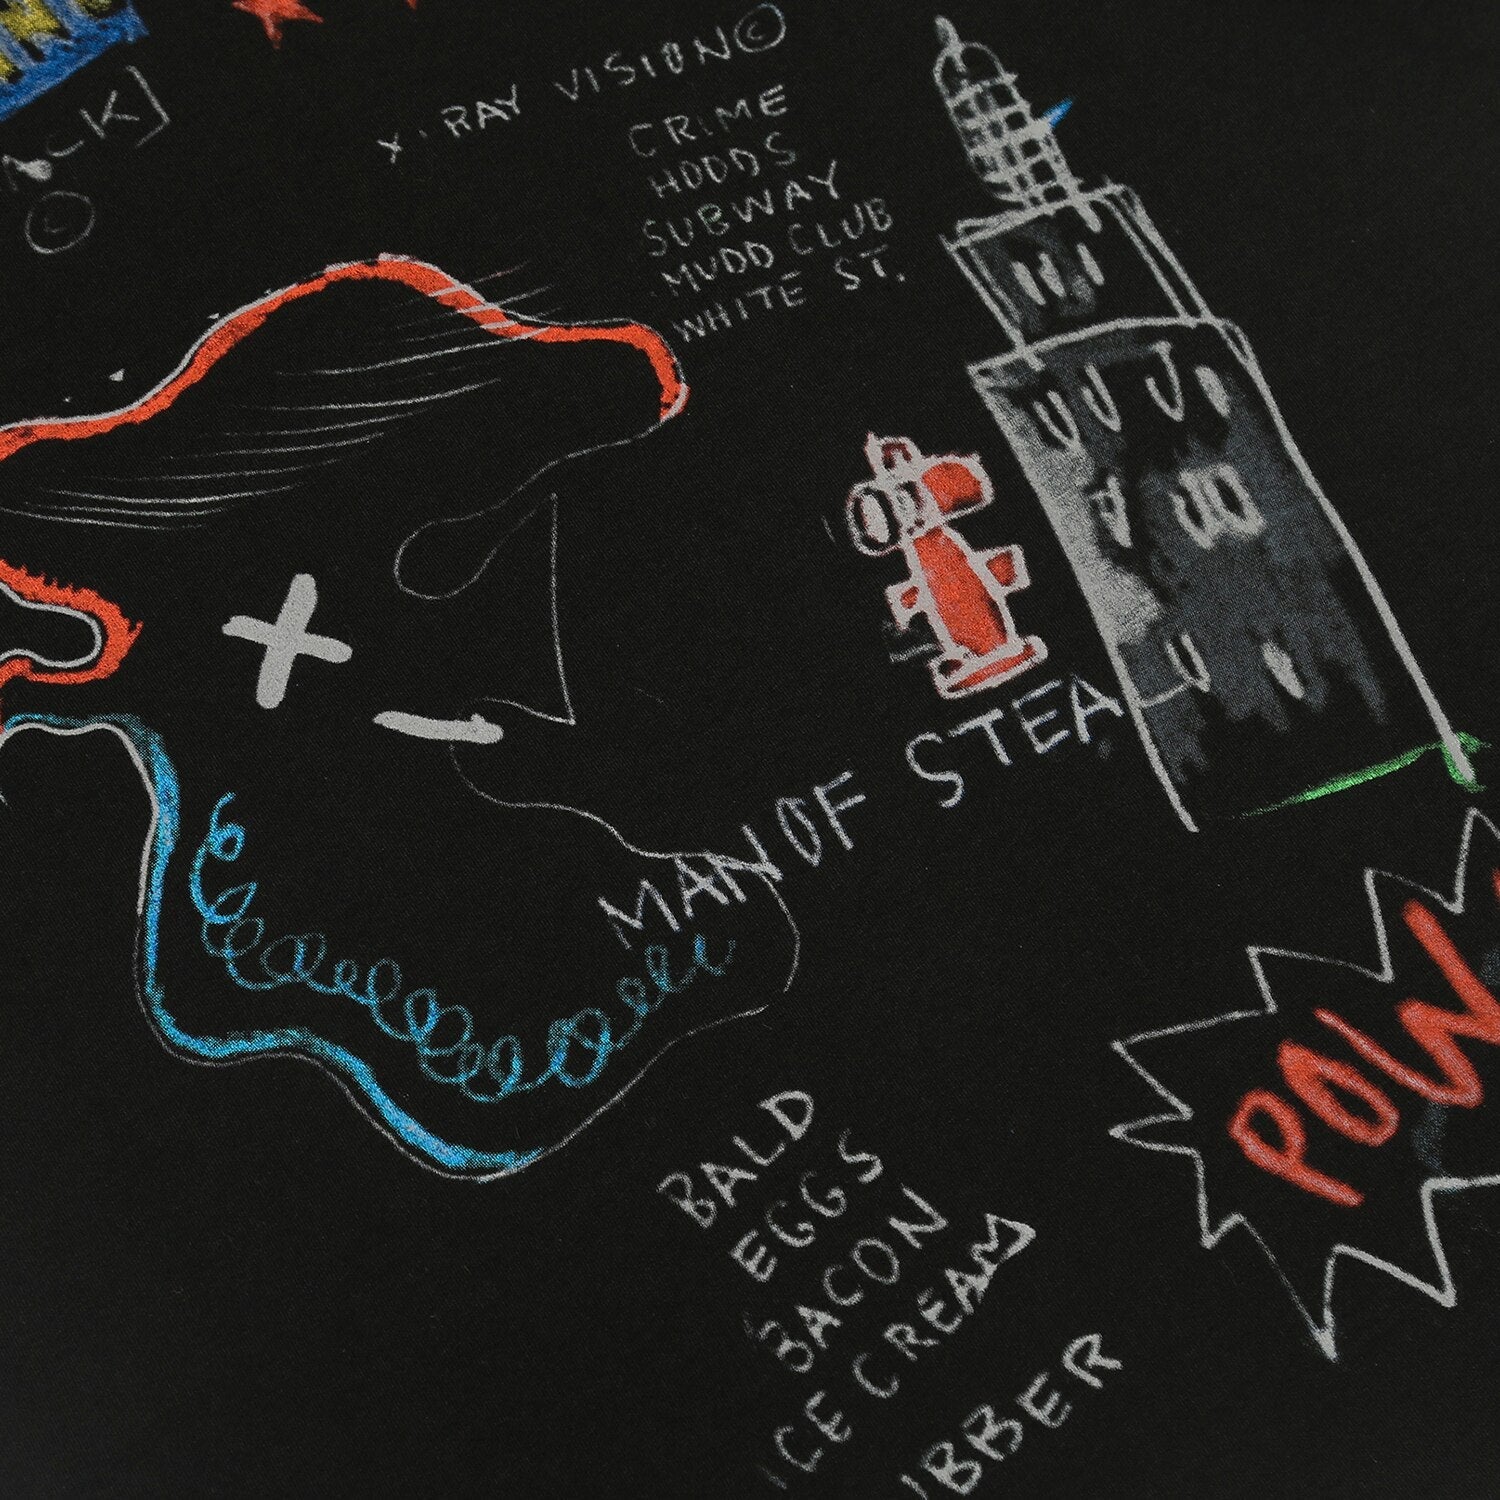 X-RAY VISION©
CRIME
HOODS
SUBWAY
MUDD CLUB
WHITE ST.
ACK]
©
MAN OF STEA
POW
BALD
EGGS
BACON
ICE CREAM
UBBER